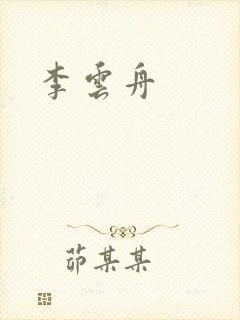 李雲舟
茆某某